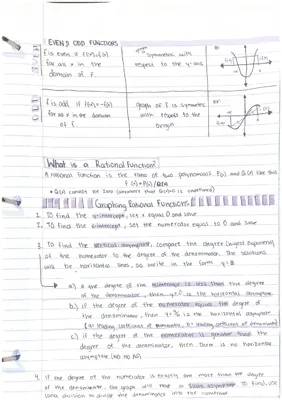 EVEN & ODD FUNCTIONS
EVEN
f is even if f(-x)=f(x)
for all x in the
domain of f.
symmetric with
respect to the y-axis
ex:
ODD
f is odd if f(-x)=-f(x)
for all x in the domain
of f.
graph of f is symmetric
with respect to the
origin
ex:
What is a Rational Function?
A rational function is the ratio of two polynomials P(x) and Q(x) like this
f(x) = P(x)/Q(x)
Graphing Rational Functions
1. To find the y-intercept, set x equal 0 and solve
2. To find the x-intercept, set the numerator equal to 0 and solve
3. To find the asymptote, compare the degree (highest exponent)
of the numerator to the degree of the denominator. The
will be horizontal lines, so write in the form y=#
a.) if the degree of the numerator is less than the degree
of the denominator, then y=0 is the horizontal asymptote
b.) if the degree of the numerator equals the degree of
the denominator, then y=a/b is the horizontal asymptote
c.) if the degree of the numerator is greater than the
degree of the denominator, then there is no horizontal
asymptote (HA: no HA)
4. If the degree of the numerator is exactly one more than the degree
of the denominator, the graph will have a slant asymptote. To find, use
long division to divide the denominator into the numerator